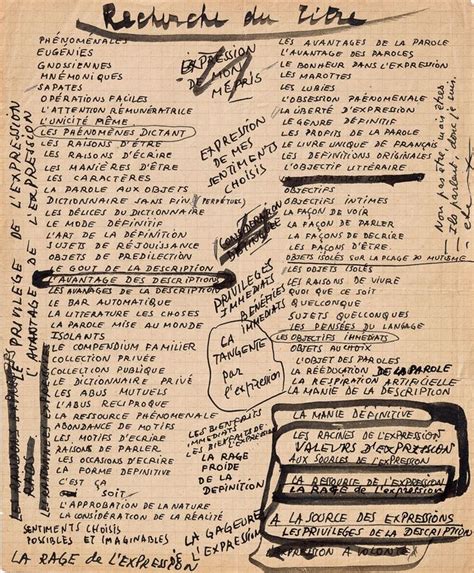 Recherche du Titre
PHÉNOMÉNALES
EUGÉNIES
GNOSSIENNES
MNÉMONIQUES
SAPATES
OPÉRATIONS FACILES
L'ATTENTION RÉMUNÉRATRICE
L'UNICITÉ MÊME
LES PHÉNOMÈNES DICTANT
LES RAISONS D'ÊTRE
LES RAISONS D'ÉCRIRE
LES MANIÈRES D'ÊTRE
LES CARACTÈRES
LA PAROLE AUX OBJETS
DICTIONNAIRE SANS FIN (PERPÉTUEL)
LES DÉLICES DU DICTIONNAIRE
LE MODE DÉFINITIF
L'ART DE LA DÉFINITION
SUJETS DE RÉJOUISSANCE
OBJETS DE PREDILECTION
LE GOUT DE LA DESCRIPTION
L'AVANTAGE DES DESCRIPTIONS
LES AVANAGES DE LA DESCRIPTION
LE BAR AUTOMATIQUE
LA LITTERATURE LES CHOSES
LA PAROLE MISE AU MONDE
ISOLANTS
LE COMPENDIUM FAMILIER
COLLECTION PRIVÉE
COLLECTION PUBLIQUE
LE DICTIONNAIRE PRIVÉ
LES ABUS MUTUELS
L'ABUS RECIPROQUE
LA RESSOURCE PHÉNOMÉNALE
ABONDANCE DE MOTIFS
LES MOTIFS D'ECRIRE
RAISONS DE PARLER
LES OCCASIONS D'ÉCRIRE
LA FORME DEFINITIVE
C'EST ÇA
SOIT
L'APPROBATION DE LA NATURE
LA CONSIDÉRATION DE LA RÉALITÉ
SENTIMENTS CHOISIS
POSSIBLES ET IMAGINABLES
LA RAGE de L'EXPRESSION
LE PRIVILEGE DE L'EXPRESSION
L'AVANTAGE DE L'EXPRESSION
EXPRESSION
DE MON
MÉPRIS
EXPRESSION
DE MES
SENTIMENTS
CHOISIS
CONSIDÉRATION
PRIVILEGES
IMMEDIATS
BENEFICES
IMMEDIATS
LA
TANGENTE
par
l'expression
LES BIENFAITS
IMMEDIATS
LES BIENFAITS DE
L'EXPRESSION
LA RAGE
FROIDE
DE LA
DEFINITION
LA GAGEURE
L'EXPRESSION
LES AVANTAGES DE LA PAROLE
L'AVANTAGES DE PAROLES
LE BONHEUR DANS L'EXPRESSION
LES MAROTTES
LES LUBIES
L'OBSESSION PHÉNOMÉNALE
LA LIBERTÉ D'EXPRESSION
LE GENRE DÉFINITIF
LES PROFITS DE LA PAROLE
LE LIVRE UNIQUE DE FRANÇAIS
LES DÉFINITIONS ORIGINALES
L'OBJECTIF LITTÉRAIRE
OBJECTIFS
OBJECTIFS INTIMES
LA FAÇON DE VOIR
LA FAÇON DE PARLER
LA FAÇON DE DECRIRE
LES FAÇONS D'ÊTRE
OBJETS ISOLÉS SUR LA PLAGE DU MUTISME
LES OBJETS ISOLÉS
LES RAISONS DE VIVRE
QUOI QUE CE SOIT
QUELCONQUE
SUJETS QUELCONQUES
LES PENSÉES DU LANGAGE
LES OBJECTIFS IMMEDIATS
OBJETS AU CHOIX
L'OBJET DES PAROLES
LA RÉÉDUCATION DE LA PAROLE
LA RESPIRATION ARTIFICIELLE
LA MANIE DE LA DESCRIPTION
LA MANIE DÉFINITIVE
LES RACINES DE L'EXPRESSION
VALEURS D'EXPRESSION
AUX SOURCES DE L'EXPRESSION
LA RESSOURCE DE L'EXPRESSION
LA RAGE DE L'EXPRESSION
A LA SOURCE DES EXPRESSIONS
LES PRIVILEGES DE LA DESCRIPTION
EXPRESSION A VOLONTÉ
Non pas être, mais êtres
Ils parlent, donc je suis.